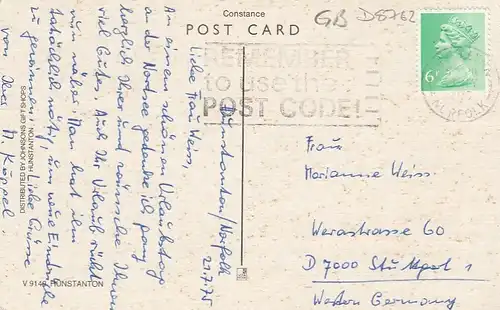 Constance
POST CARD
GB D8762
REMEMBER
to use the
POST CODE!
NORFOLK
6P
Hunstanton/Norfolk
21.7.75
Liebe Frau Weiss,
An einem schönen Urlaubstag
an der Nordsee gedenke ich ganz
herzlich Ihrer und wünsche Ihnen
viel Gutes. Auch Ihr Urlaub rückt
nun näher. Man hat ihn
tatsächlich nötig, um neue Eindrücke
zu gewinnen! Liebe Grüsse
von Ihrer M. Köppel.
Frau
Marianne Weiss
Werastrasse 60
D 7000 Stuttgart 1
Western Germany
DISTRIBUTED BY JOHNSONS GIFT SHOPS
HUNSTANTON
V 9149 HUNSTANTON